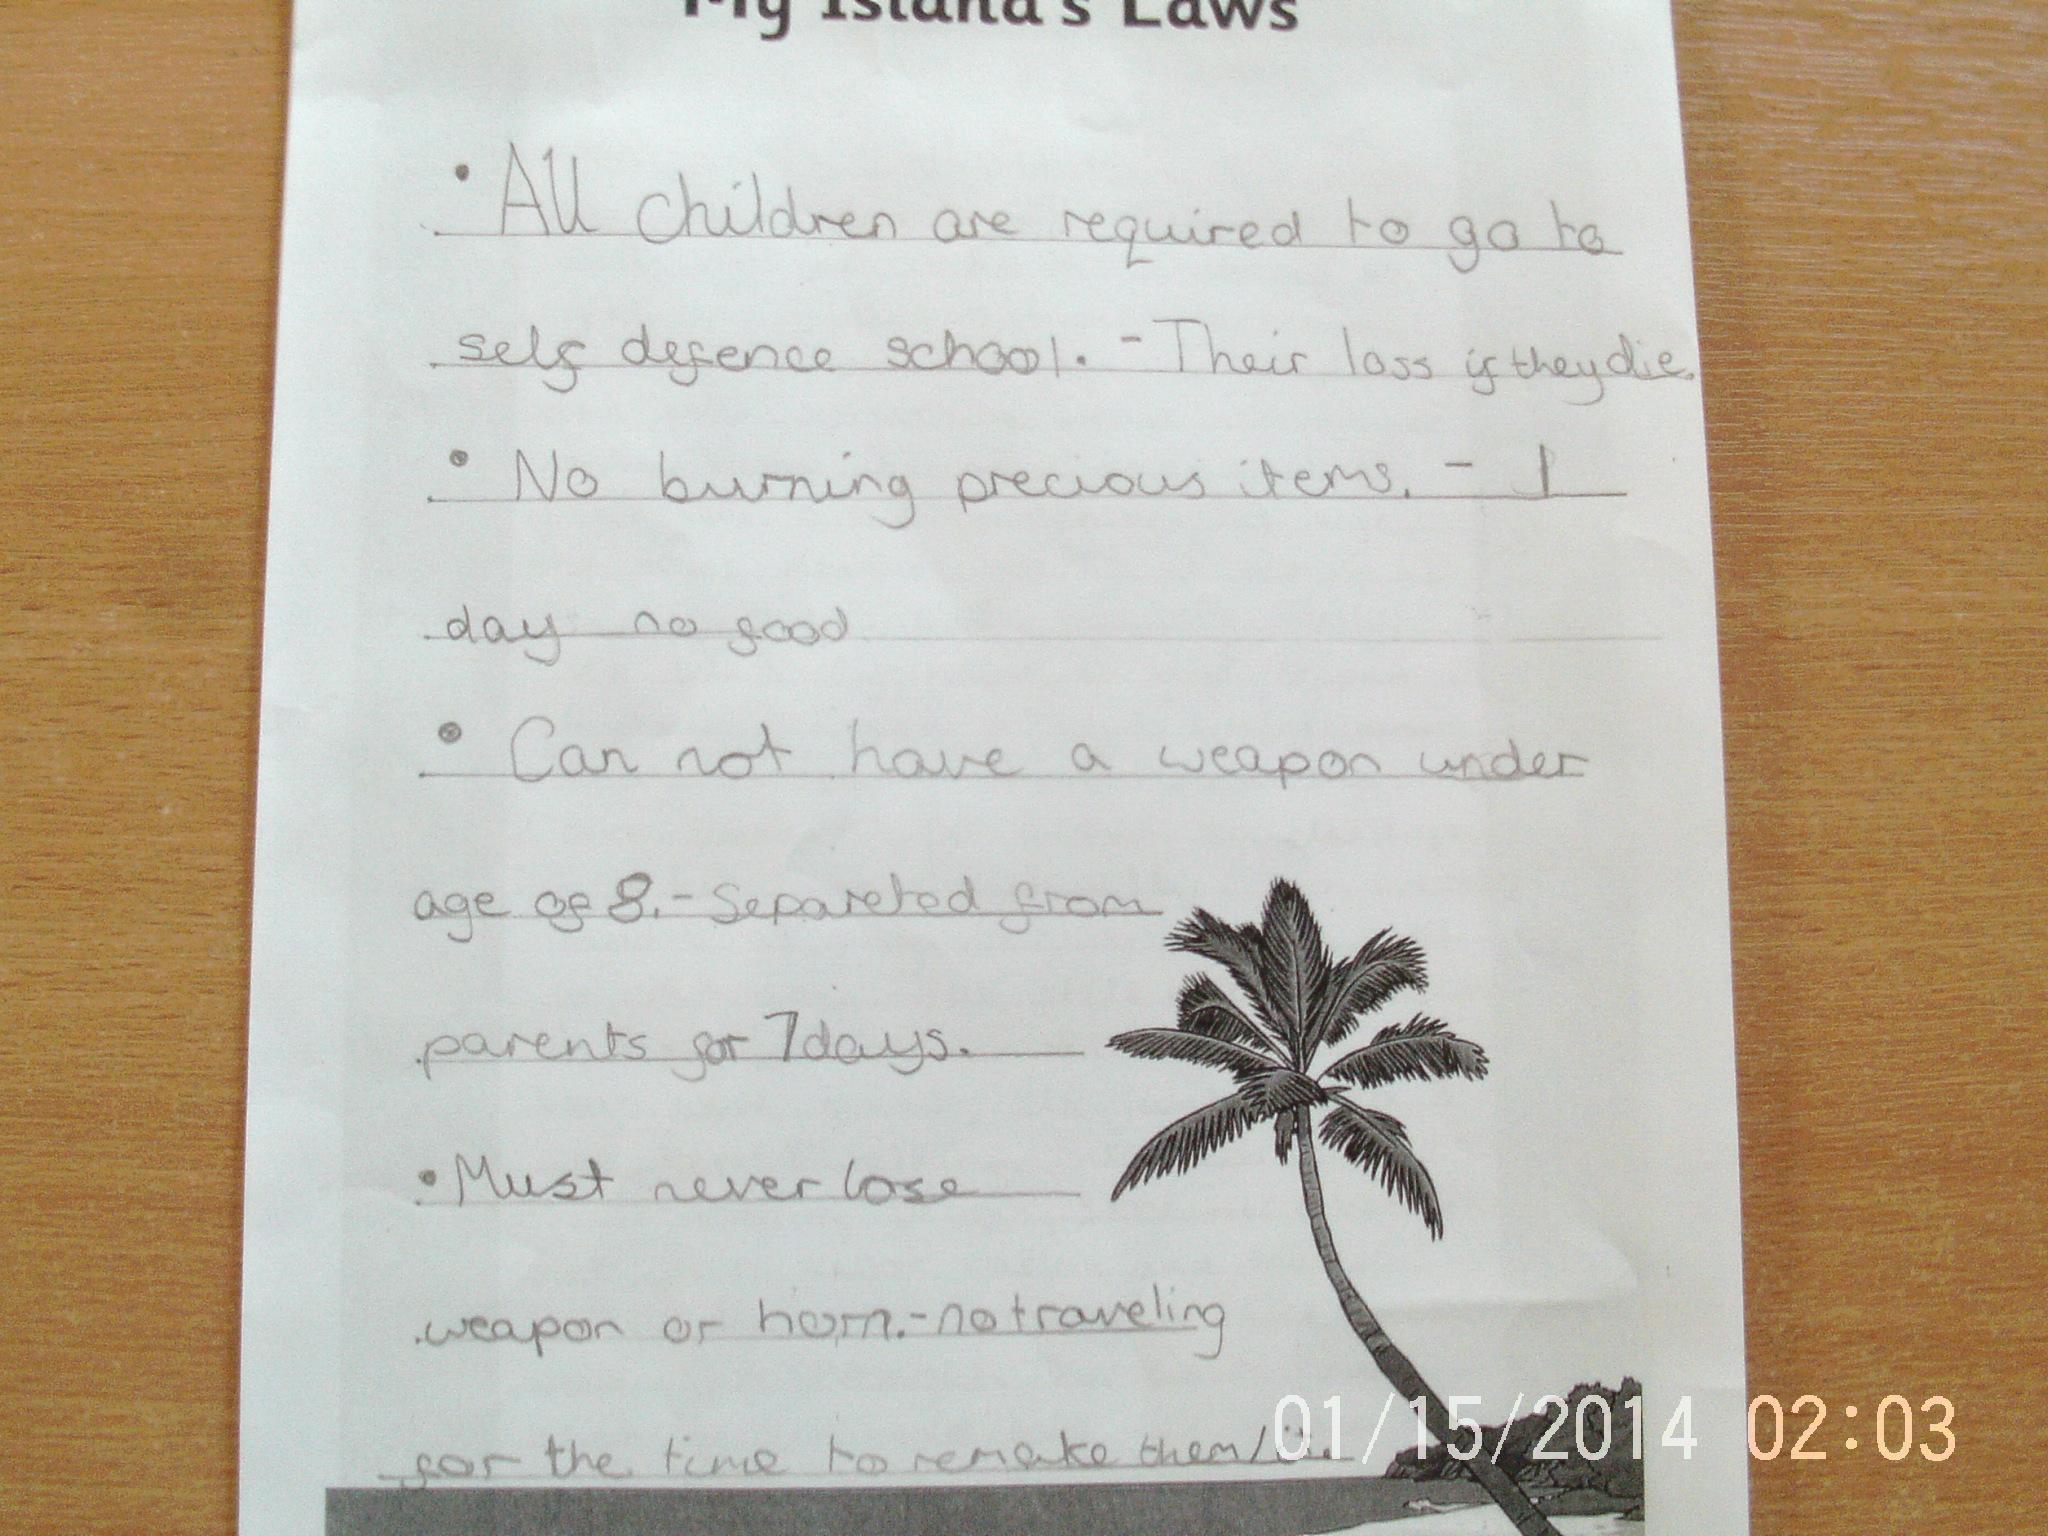 My Island's Laws
• All children are required to go to
self defence school. - Their loss if they die.
• No burning precious items. - 1
day no food
• Can not have a weapon under
age of 8. - Separeted from
parents for 7 days.
• Must never lose
weapon or horn. - no traveling
for the time to remake them/it.
01/15/2014 02:03